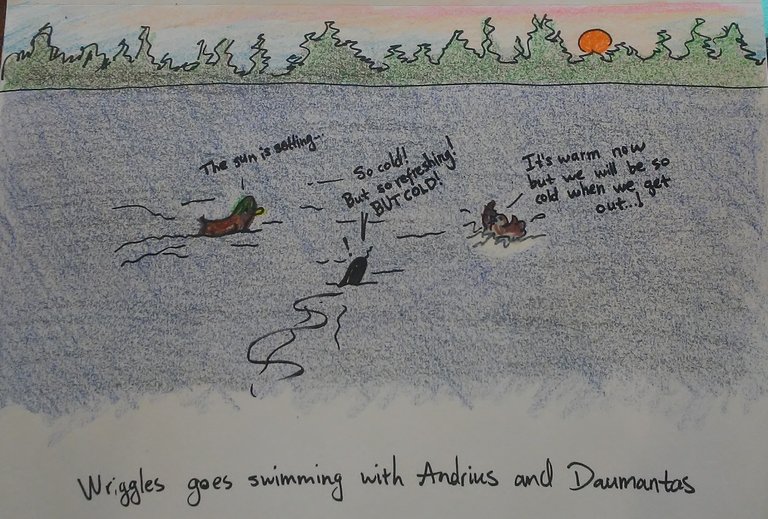 The sun is setting...
So cold!
But so refreshing!
BUT COLD!
It's warm now
but we will be so
cold when we get
out..!
Wriggles goes swimming with Andrius and Daumantas